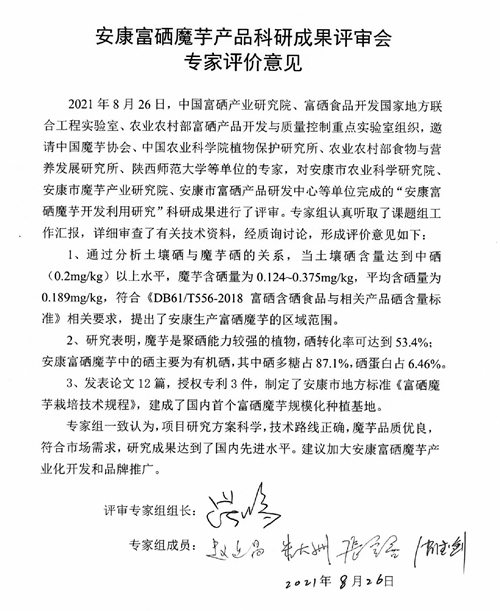 安康富硒魔芋产品科研成果评审会
专家评价意见
2021年8月26日，中国富硒产业研究院、富硒食品开发国家地方联
合工程实验室、农业农村部富硒产品开发与质量控制重点实验室组织，邀
请中国魔芋协会、中国农业科学院植物保护研究所、农业农村部食物与营
养发展研究所、陕西师范大学等单位的专家，对安康市农业科学研究院、
安康市魔芋产业研究院、安康市富硒产品研发中心等单位完成的“安康富
硒魔芋开发利用研究”科研成果进行了评审。专家组认真听取了课题组工
作汇报，详细审查了有关技术资料，经质询讨论，形成评价意见如下：
1、通过分析土壤硒与魔芋硒的关系，当土壤硒含量达到中硒
（0.2mg/kg）以上水平，魔芋含硒量为0.124~0.375mg/kg，平均含硒量为
0.189mg/kg，符合《DB61/T556-2018 富硒含硒食品与相关产品硒含量标
准》相关要求，提出了安康生产富硒魔芋的区域范围。
2、研究表明，魔芋是聚硒能力较强的植物，硒转化率可达到53.4%；
安康富硒魔芋中的硒主要为有机硒，其中硒多糖占87.1%，硒蛋白占6.46%。
3、发表论文12篇，授权专利3件，制定了安康市地方标准《富硒魔
芋栽培技术规程》，建成了国内首个富硒魔芋规模化种植基地。
专家组一致认为，项目研究方案科学，技术路线正确，魔芋品质优良，
符合市场需求，研究成果达到了国内先进水平。建议加大安康富硒魔芋产
业化开发和品牌推广。
评审专家组组长：
专家组成员：
2021年8月26日